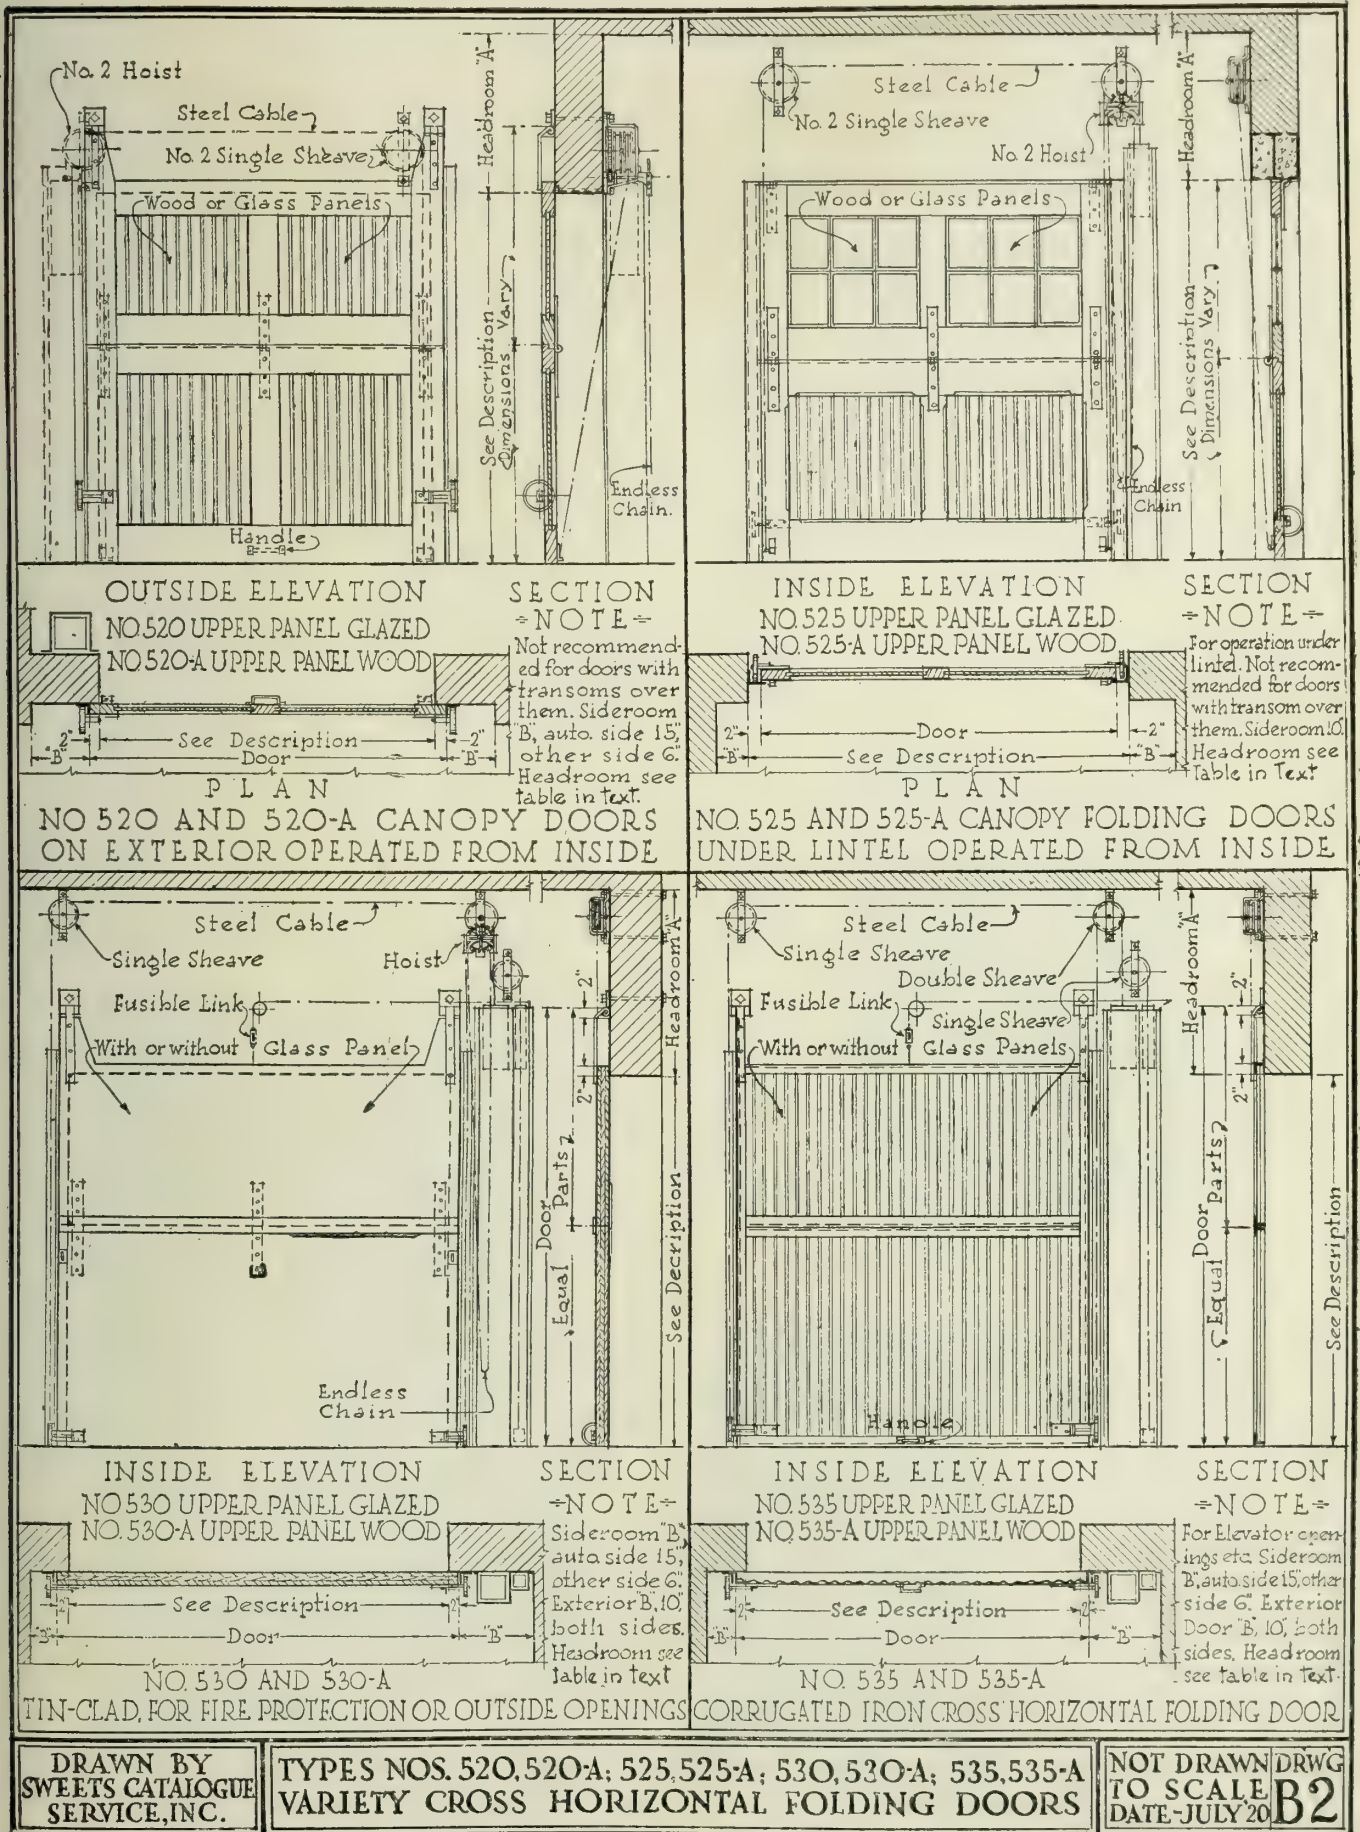 No. 2 Hoist
Steel Cable
No. 2 Single Sheave
Wood or Glass Panels
Handle
Headroom "A"
See Description
Dimensions Vary
Endless
Chain.
OUTSIDE ELEVATION
NO. 520 UPPER PANEL GLAZED
NO. 520-A UPPER PANEL WOOD
SECTION
÷NOTE÷
Not recommend-
ed for doors with
transoms over
them. Sideroom
B, auto. side 15",
other side 6".
Headroom see
table in text.
2" See Description 2"
"B" Door "B"
PLAN
NO 520 AND 520-A CANOPY DOORS
ON EXTERIOR OPERATED FROM INSIDE
Steel Cable
No. 2 Single Sheave
No. 2 Hoist
Wood or Glass Panels
Headroom "A"
See Description
Dimensions Vary
Endless
Chain
INSIDE ELEVATION
NO. 525 UPPER PANEL GLAZED
NO. 525-A UPPER PANEL WOOD
SECTION
÷NOTE÷
For operation under
lintel. Not recom-
mended for doors
with transom over
them. Sideroom 10".
Headroom see
Table in Text
2" Door 2"
"B" See Description "B"
PLAN
NO. 525 AND 525-A CANOPY FOLDING DOORS
UNDER LINTEL OPERATED FROM INSIDE
Steel Cable
Single Sheave
Hoist
Fusible Link
With or without Glass Panel
Headroom "A"
2"
2"
Door
Equal Parts
See Decription
Endless
Chain
INSIDE ELEVATION
NO 530 UPPER PANEL GLAZED
NO. 530-A UPPER PANEL WOOD
SECTION
÷NOTE÷
Sideroom "B",
auto side 15",
other side 6".
Exterior B, 10",
both sides.
Headroom see
table in text
2" See Description 2"
"B" Door "B"
NO. 530 AND 530-A
TIN-CLAD, FOR FIRE PROTECTION OR OUTSIDE OPENINGS
Steel Cable
Single Sheave
Double Sheave
Fusible Link
Single Sheave
With or without Glass Panels
Headroom "A"
2"
2"
Door
Equal Parts
See Description
Handle
INSIDE ELEVATION
NO. 535 UPPER PANEL GLAZED
NO. 535-A UPPER PANEL WOOD
SECTION
÷NOTE÷
For Elevator open-
ings etc. Sideroom
B", auto. side 15", other
side 6". Exterior
Door "B", 10", both
sides, Headroom
see table in text.
2" See Description 2"
"B" Door "B"
NO. 535 AND 535-A
CORRUGATED IRON CROSS HORIZONTAL FOLDING DOOR
DRAWN BY
SWEETS CATALOGUE
SERVICE, INC.
TYPES NOS. 520, 520-A; 525, 525-A; 530, 530-A; 535, 535-A
VARIETY CROSS HORIZONTAL FOLDING DOORS
NOT DRAWN
TO SCALE
DATE-JULY 20
DRWG
B2